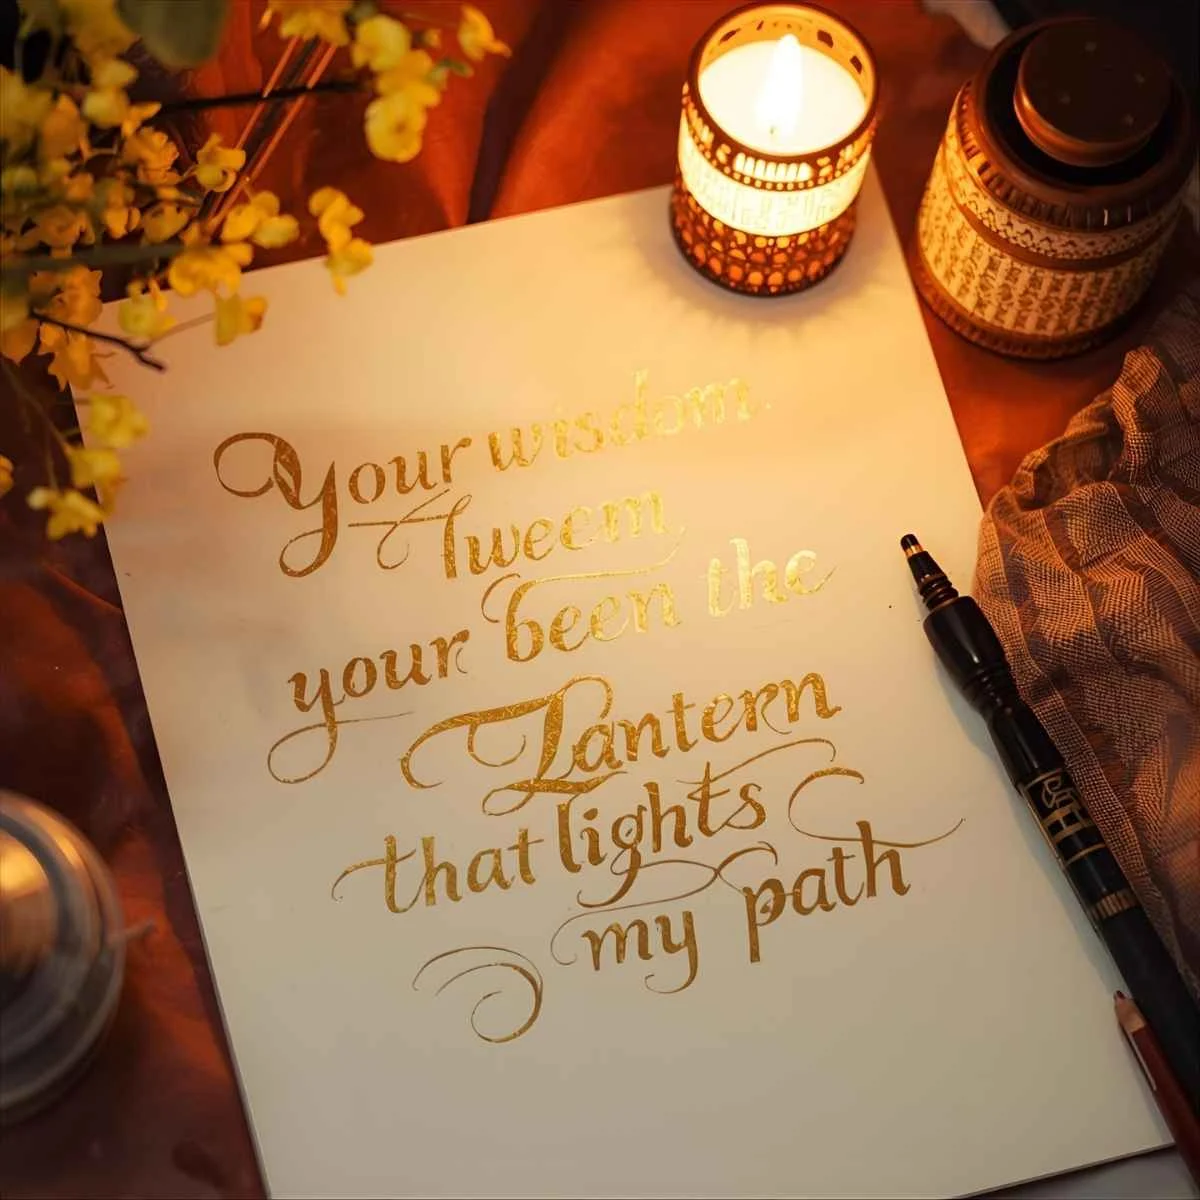 Your wisdom
Tweem
your been the
Lantern
that lights
my path